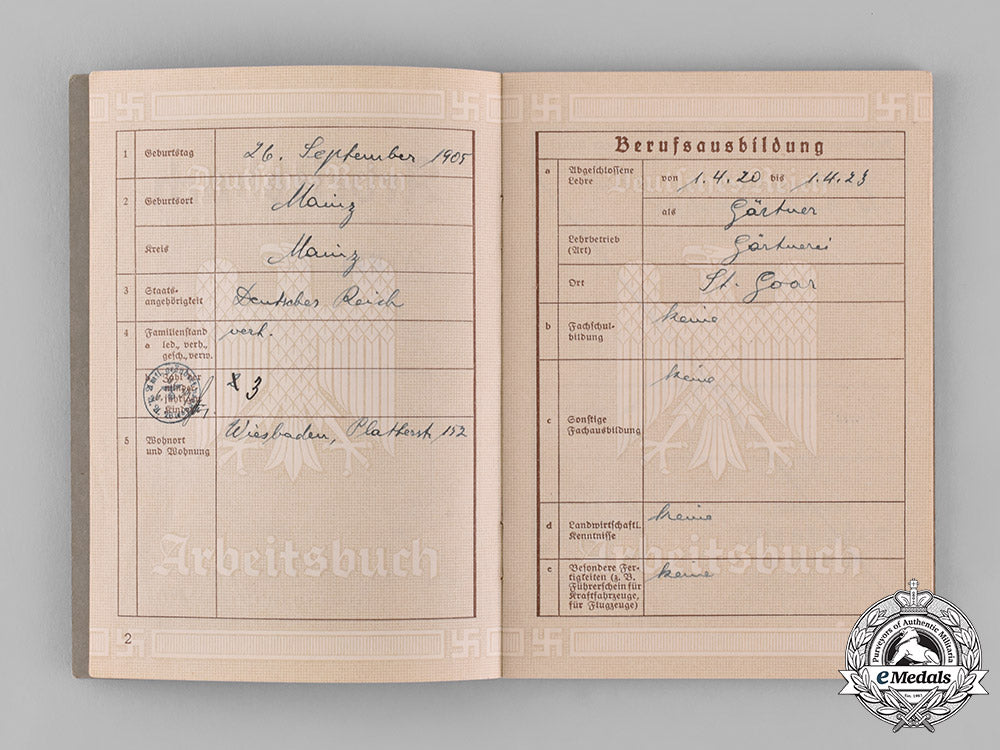 1 Geburtstag 26. September 1905
2 Geburtsort Mainz
Kreis Mainz
3 Staats-
angehörigkeit Deutsches Reich
4 Familienstand verh.
a led., verh.,
gesch., verw.
3
5 Wohnort Wiesbaden, Platterstr 152
und Wohnung
Deutsches Reich
Arbeitsbuch
2
Berufsausbildung
a Abgeschlossene von 1.4.20 bis 1.4.23
Lehre
als Gärtner
Lehrbetrieb Gärtnerei
(Art)
Ort St. Goar
b Fachschul- keine
bildung
keine
c Sonstige
Fachausbildung
d Landwirtschaftl. keine
Kenntnisse
e Besondere Fer- keine
tigkeiten (z. B.
Führerschein für
Kraftfahrzeuge,
für Flugzeuge)
Deutsches Reich
Arbeitsbuch
Purveyors of Authentic Militaria
eMedals